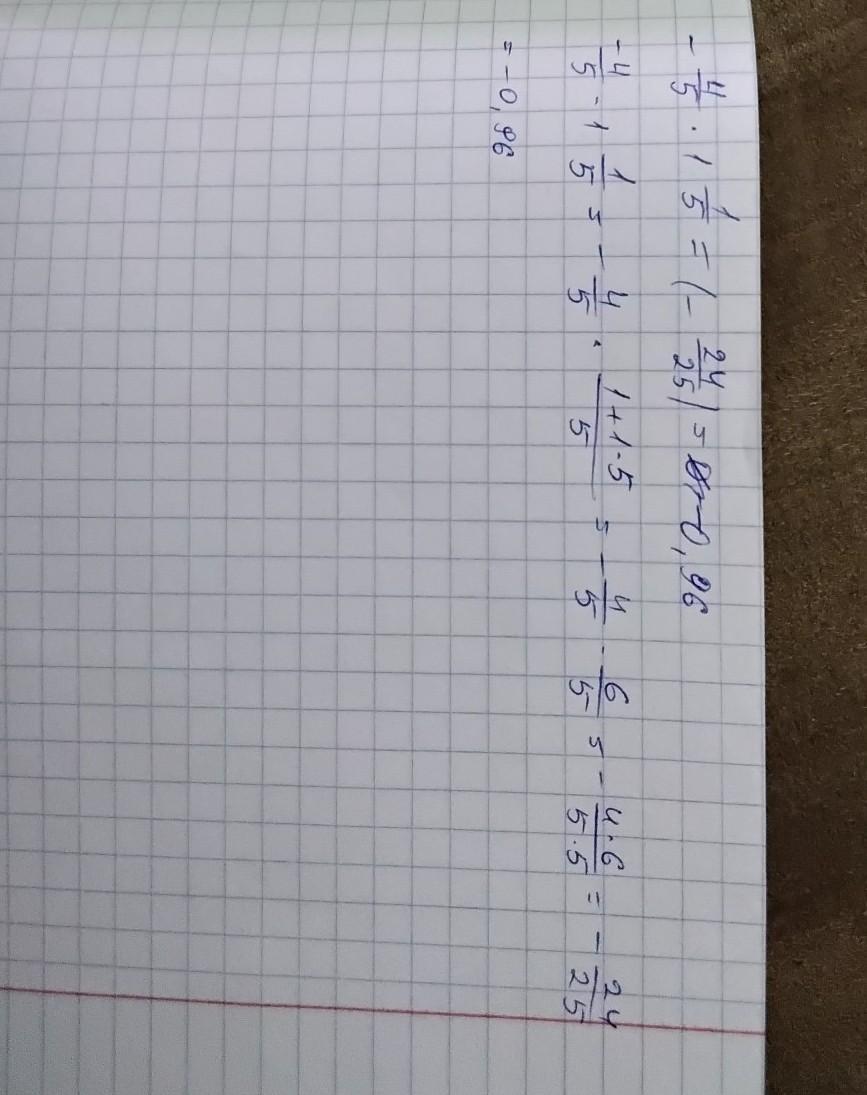 - 4/5 · 1 1/5 = (- 24/25) = -0,96
-4/5 · 1 1/5 = - 4/5 · (1+1·5)/5 = - 4/5 · 6/5 = - (4·6)/(5·5) = - 24/25
= -0,96